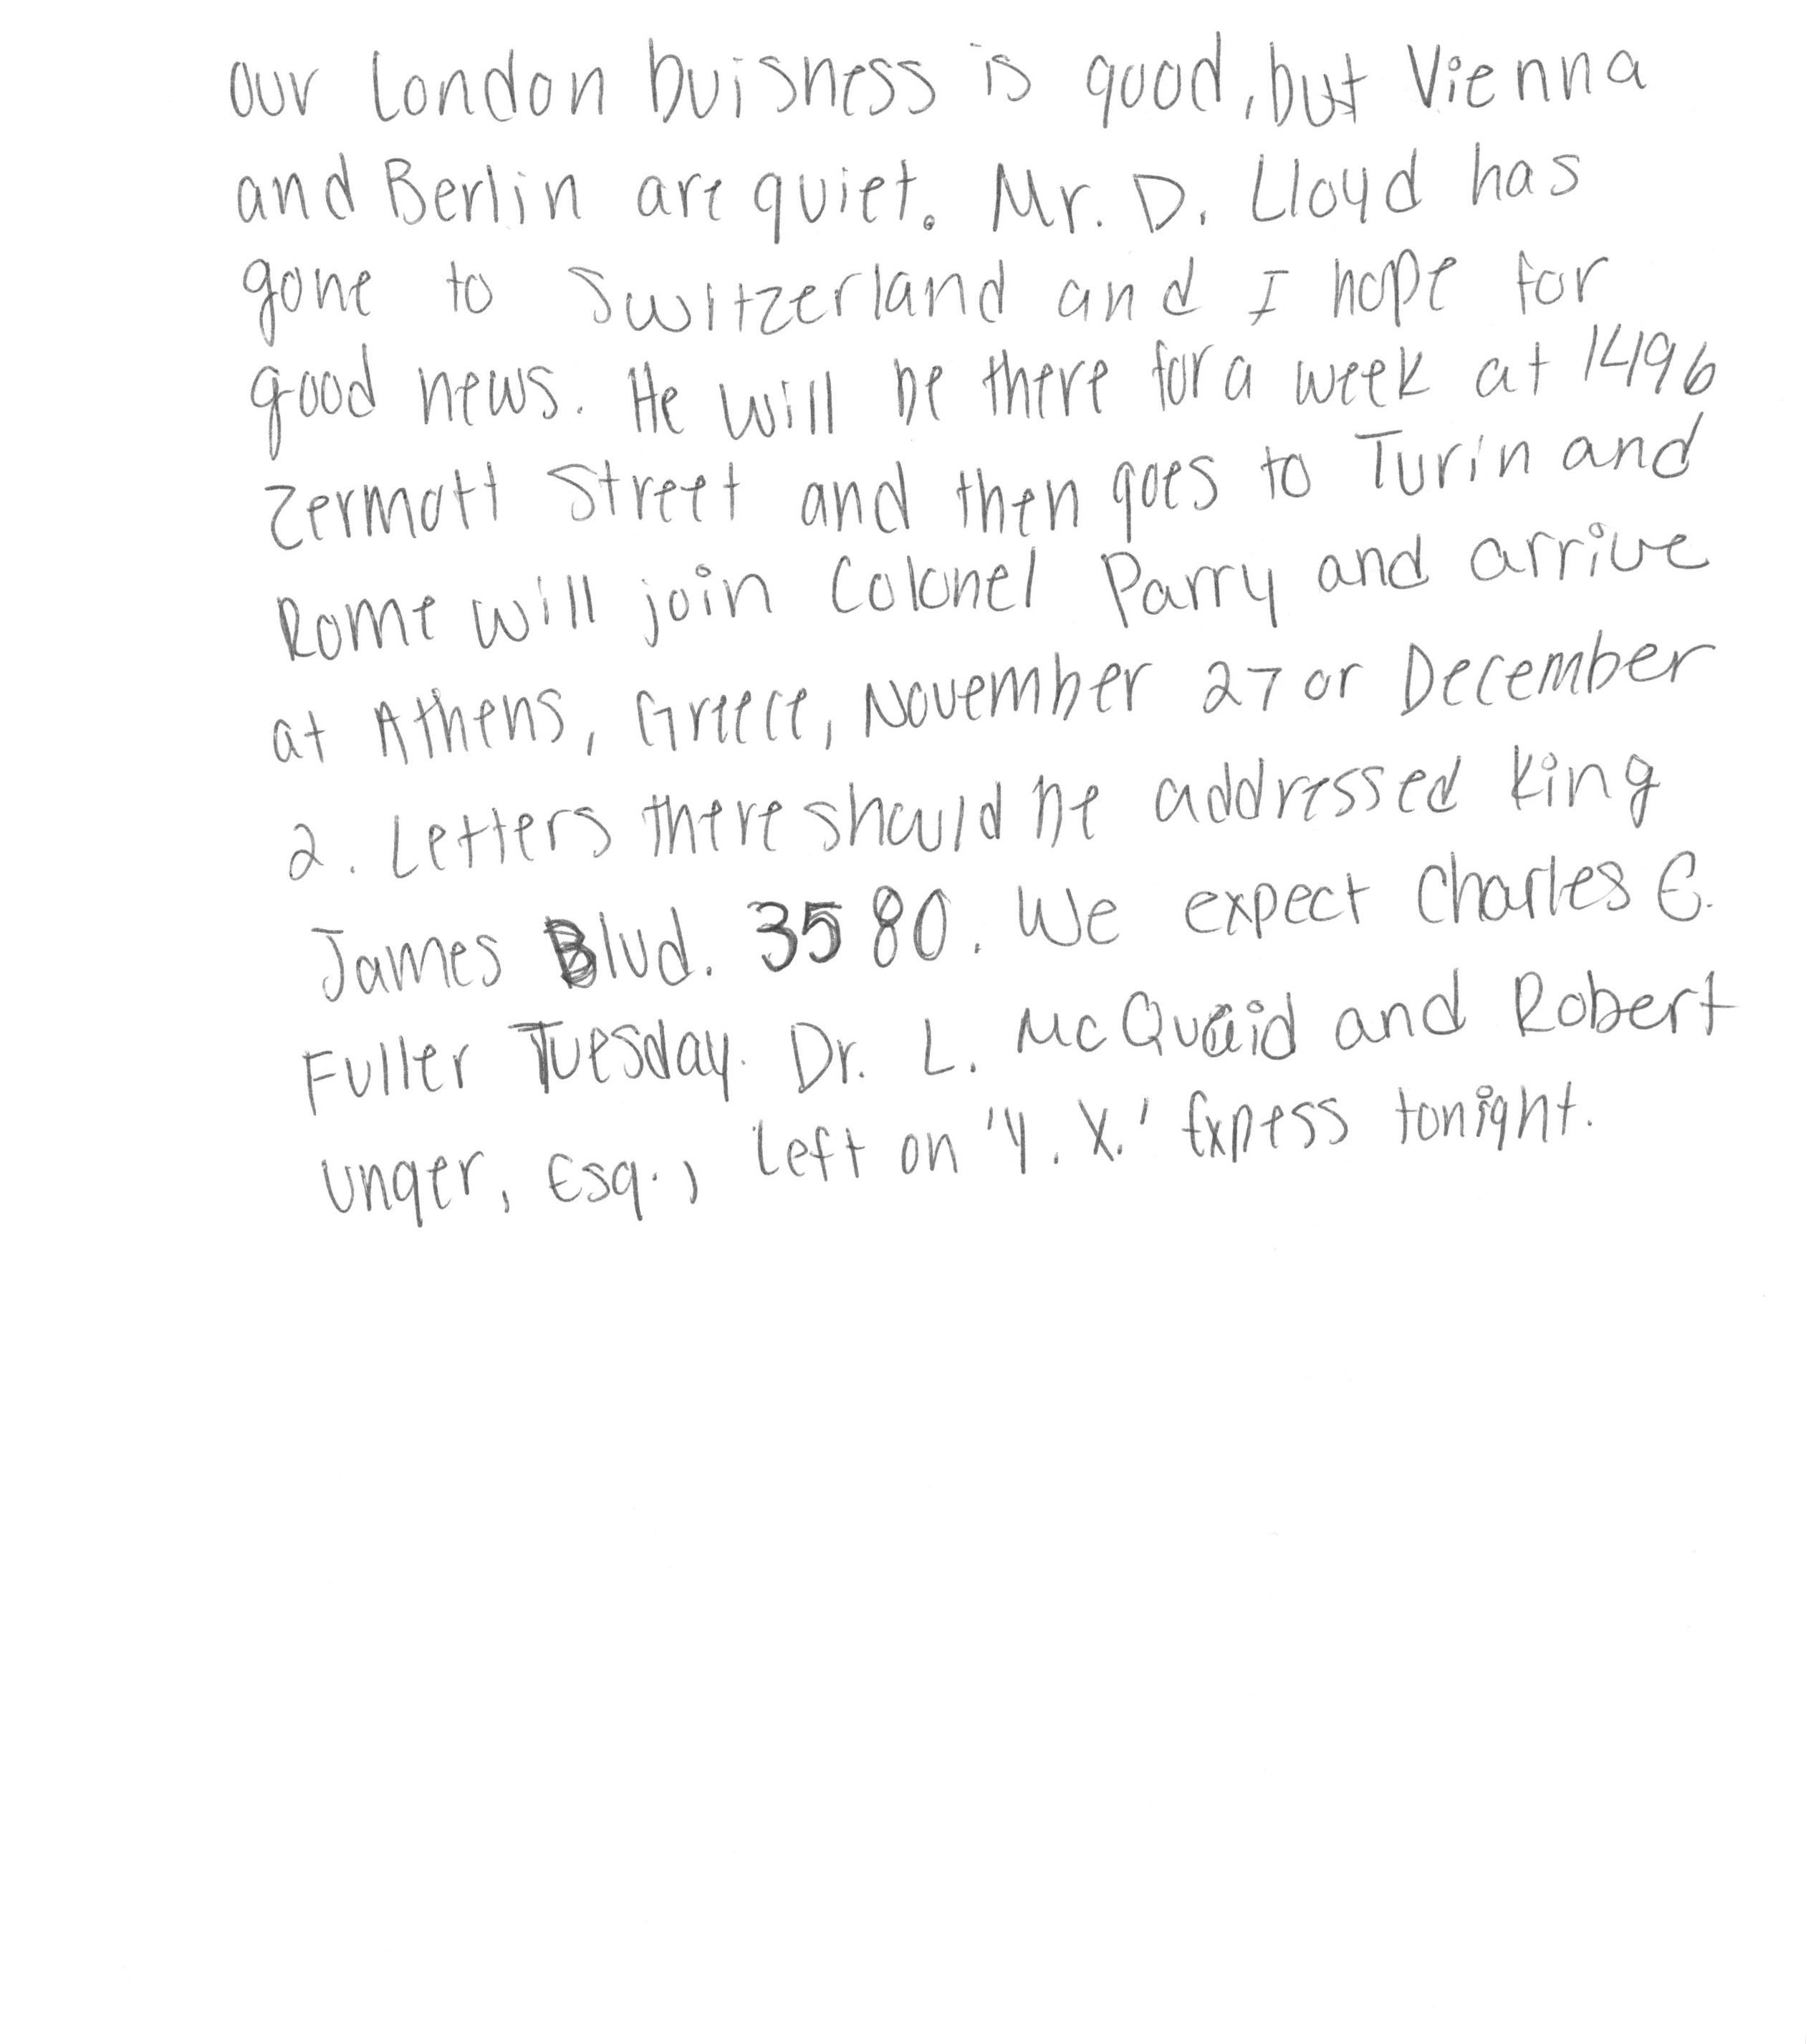 our London buisness is good, but Vienna
and Berlin are quiet. Mr. D. Lloyd has
gone to Switzerland and I hope for
good news. He will be there for a week at 1496
Zermott Street and then goes to Turin and
Rome will join Colonel Parry and arrive
at Athens, Greece, November 27 or December
2. Letters there should be addressed King
James Blvd. 3580. We expect Charles E.
Fuller Tuesday. Dr. L. McQuaid and Robert
Unger, Esq., left on 'Y. X.' Expess tonight.